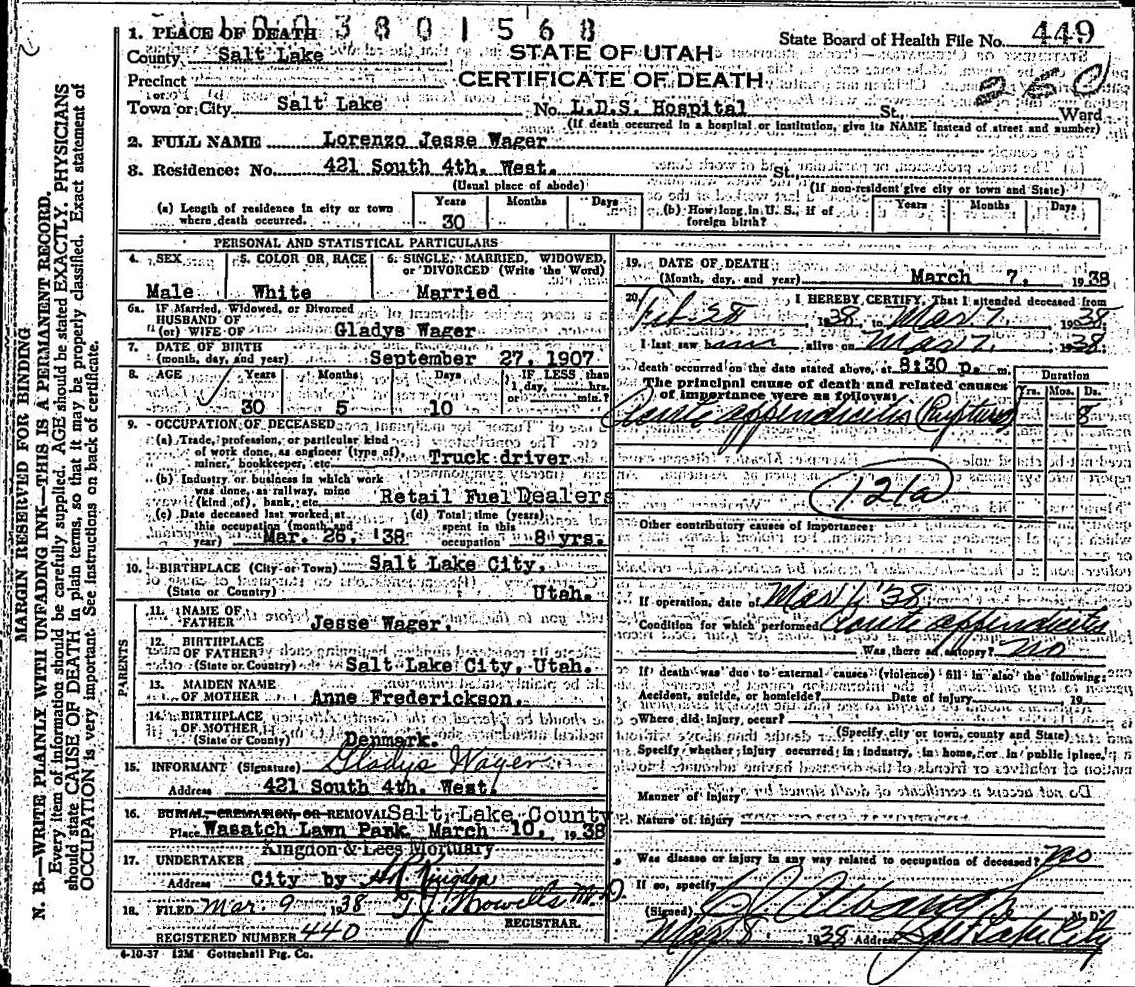 1003801568
1. PLACE OF DEATH
State Board of Health File No. 449
County Salt Lake
STATE OF UTAH
Precinct
CERTIFICATE OF DEATH
250
Town or City Salt Lake No. L.D.S. Hospital St., Ward
(If death occurred in a hospital or institution, give its NAME instead of street and number)
2. FULL NAME Lorenzo Jesse Wager
3. Residence: No. 421 South 4th. West. St.
(Usual place of abode) (If non-resident give city or town and State)
(a) Length of residence in city or town where death occurred. Years 30 Months Days
(b) How long in U. S., if of foreign birth? Years Months Days
PERSONAL AND STATISTICAL PARTICULARS
4. SEX 5. COLOR OR RACE 6. SINGLE, MARRIED, WIDOWED, or DIVORCED (Write the Word)
Male White Married
6a. IF Married, Widowed, or Divorced
HUSBAND OF
(or) WIFE OF Gladys Wager
7. DATE OF BIRTH
(month, day, and year) September 27, 1907
8. AGE Years Months Days IF LESS than 1 day, hrs. or min.?
30 5 10
9. OCCUPATION OF DECEASED
(a) Trade, profession, or particular kind
of work done, as engineer (type of), Truck driver
miner, bookkeeper, etc.
(b) Industry or business in which work
was done, as railway, mine Retail Fuel Dealers
(kind of), bank, etc.
(c) Date deceased last worked at this occupation (month and year) Mar. 26, '38
(d) Total time (years) spent in this occupation 8 yrs.
10. BIRTHPLACE (City or Town) Salt Lake City,
(State or Country) Utah.
PARENTS
11. NAME OF FATHER Jesse Wager.
12. BIRTHPLACE OF FATHER
(State or Country) Salt Lake City, Utah.
13. MAIDEN NAME OF MOTHER Anne Frederickson.
14. BIRTHPLACE OF MOTHER
(State or County) Denmark.
15. INFORMANT (Signature) Gladys Wager
Address 421 South 4th. West.
16. BURIAL, CREMATION, OR REMOVAL Salt Lake County
Place Wasatch Lawn Park March 10, 1938
Kingdon & Lees Mortuary
17. UNDERTAKER
Address City by Kingdon
18. FILED Mar. 9 1938 T J Howells M.D.
REGISTRAR.
REGISTERED NUMBER 440
19. DATE OF DEATH
(Month, day, and year) March 7, 1938
20. I HEREBY CERTIFY, That I attended deceased from
Feb. 28 1938 to Mar 7. 1938
I last saw him alive on Mar 7. 1938
death occurred on the date stated above, at 8:30 p. m.
The principal cause of death and related causes
of importance were as follows:
Duration
Yrs. Mos. Ds.
Acute appendicitis (Rupture) 8
121a
Other contributory causes of importance:
If operation, date of Mar 1, '38
Condition for which performed Acute appendicitis
Was there an autopsy? no
If death was due to external causes (violence) fill in also the following:
Accident, suicide, or homicide? Date of injury 19
Where did injury occur?
(Specify city or town, county and State)
Specify whether injury occurred in industry, in home, or in public place.
Manner of injury
Nature of injury
Was disease or injury in any way related to occupation of deceased? no
If so, specify
(Signed) M. D.
Mar 8 1938 Address Salt Lake City
6-10-37 12M Gottschall Ptg. Co.
MARGIN RESERVED FOR BINDING
N. B.—WRITE PLAINLY WITH UNFADING INK—THIS IS A PERMANENT RECORD.
Every item of information should be carefully supplied. AGE should be stated EXACTLY. PHYSICIANS
should state CAUSE OF DEATH in plain terms, so that it may be properly classified. Exact statement of
OCCUPATION is very important. See instructions on back of certificate.